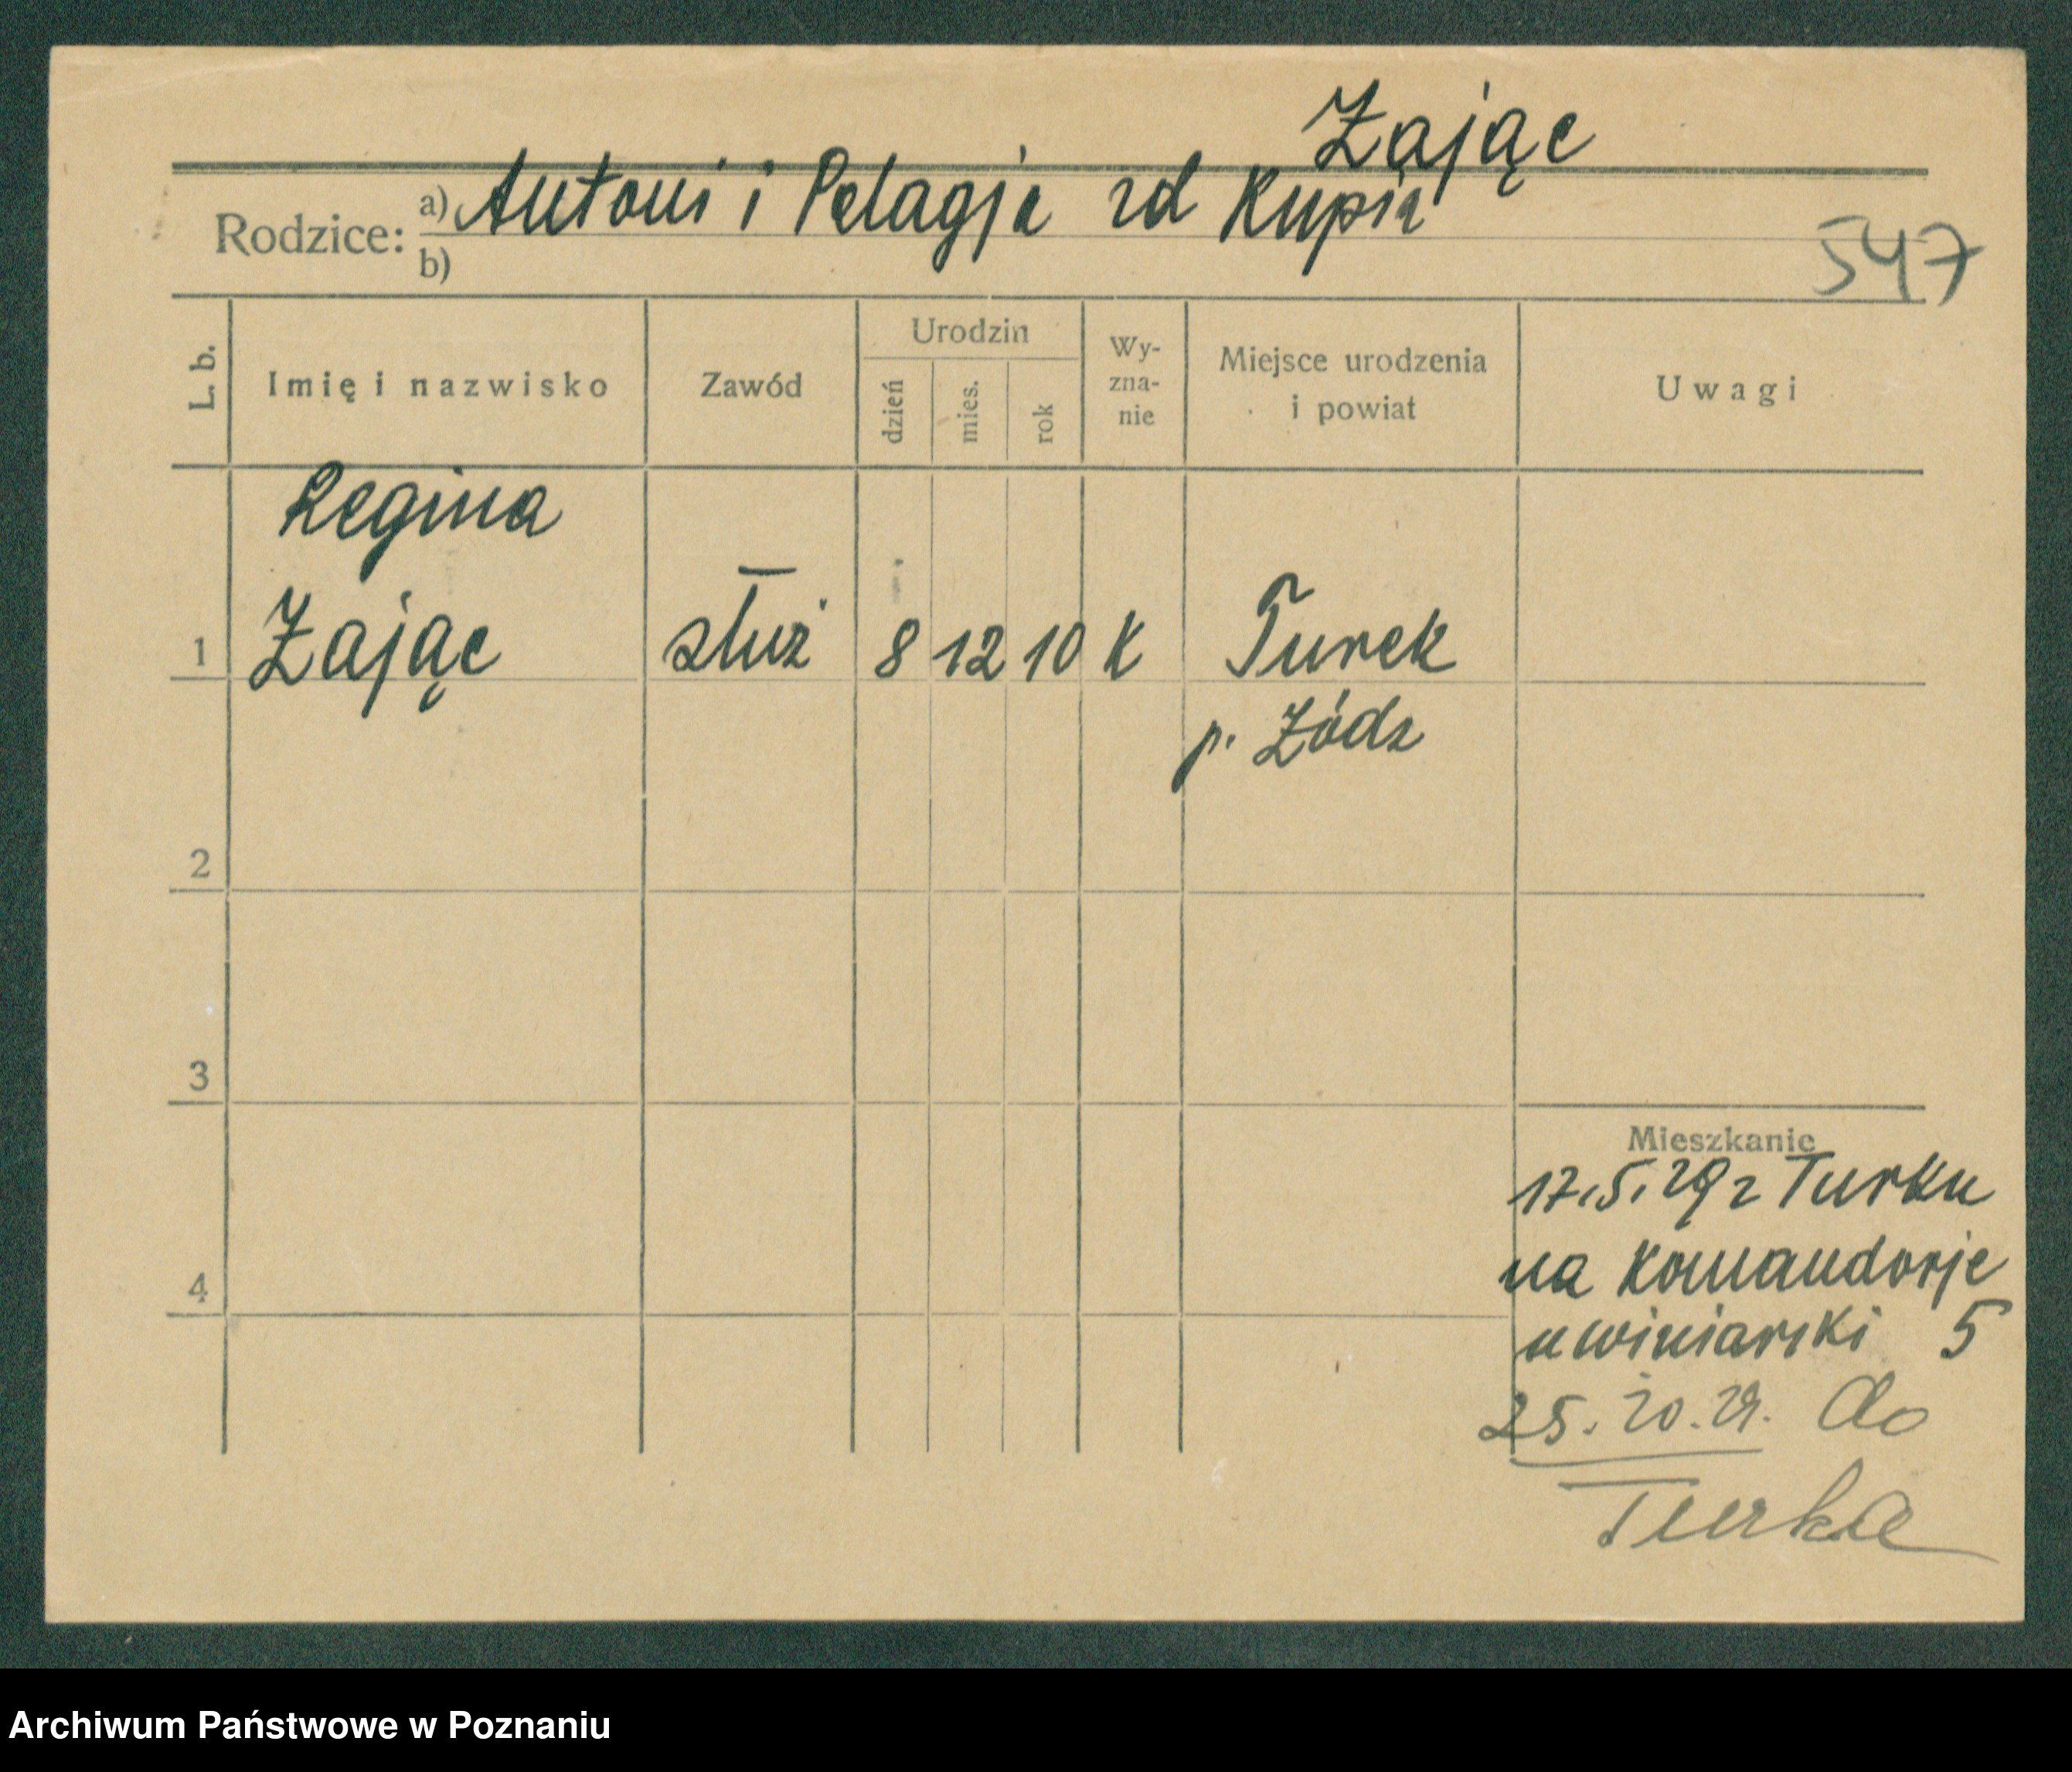 Zając
Rodzice: a) Antoni i Pelagja zd Kupś
b)
547
L. b. Imię i nazwisko Zawód Urodzin dzień mies. rok Wy-zna-nie Miejsce urodzenia i powiat Uwagi
Regina
1 Zając służ 8 12 10 K Turek
p. Łódz
2
3
Mieszkanie
17.5.29 z Turku
na Komandorje
4
u winiarski 5
25. 10. 29. do
Turka
Archiwum Państwowe w Poznaniu